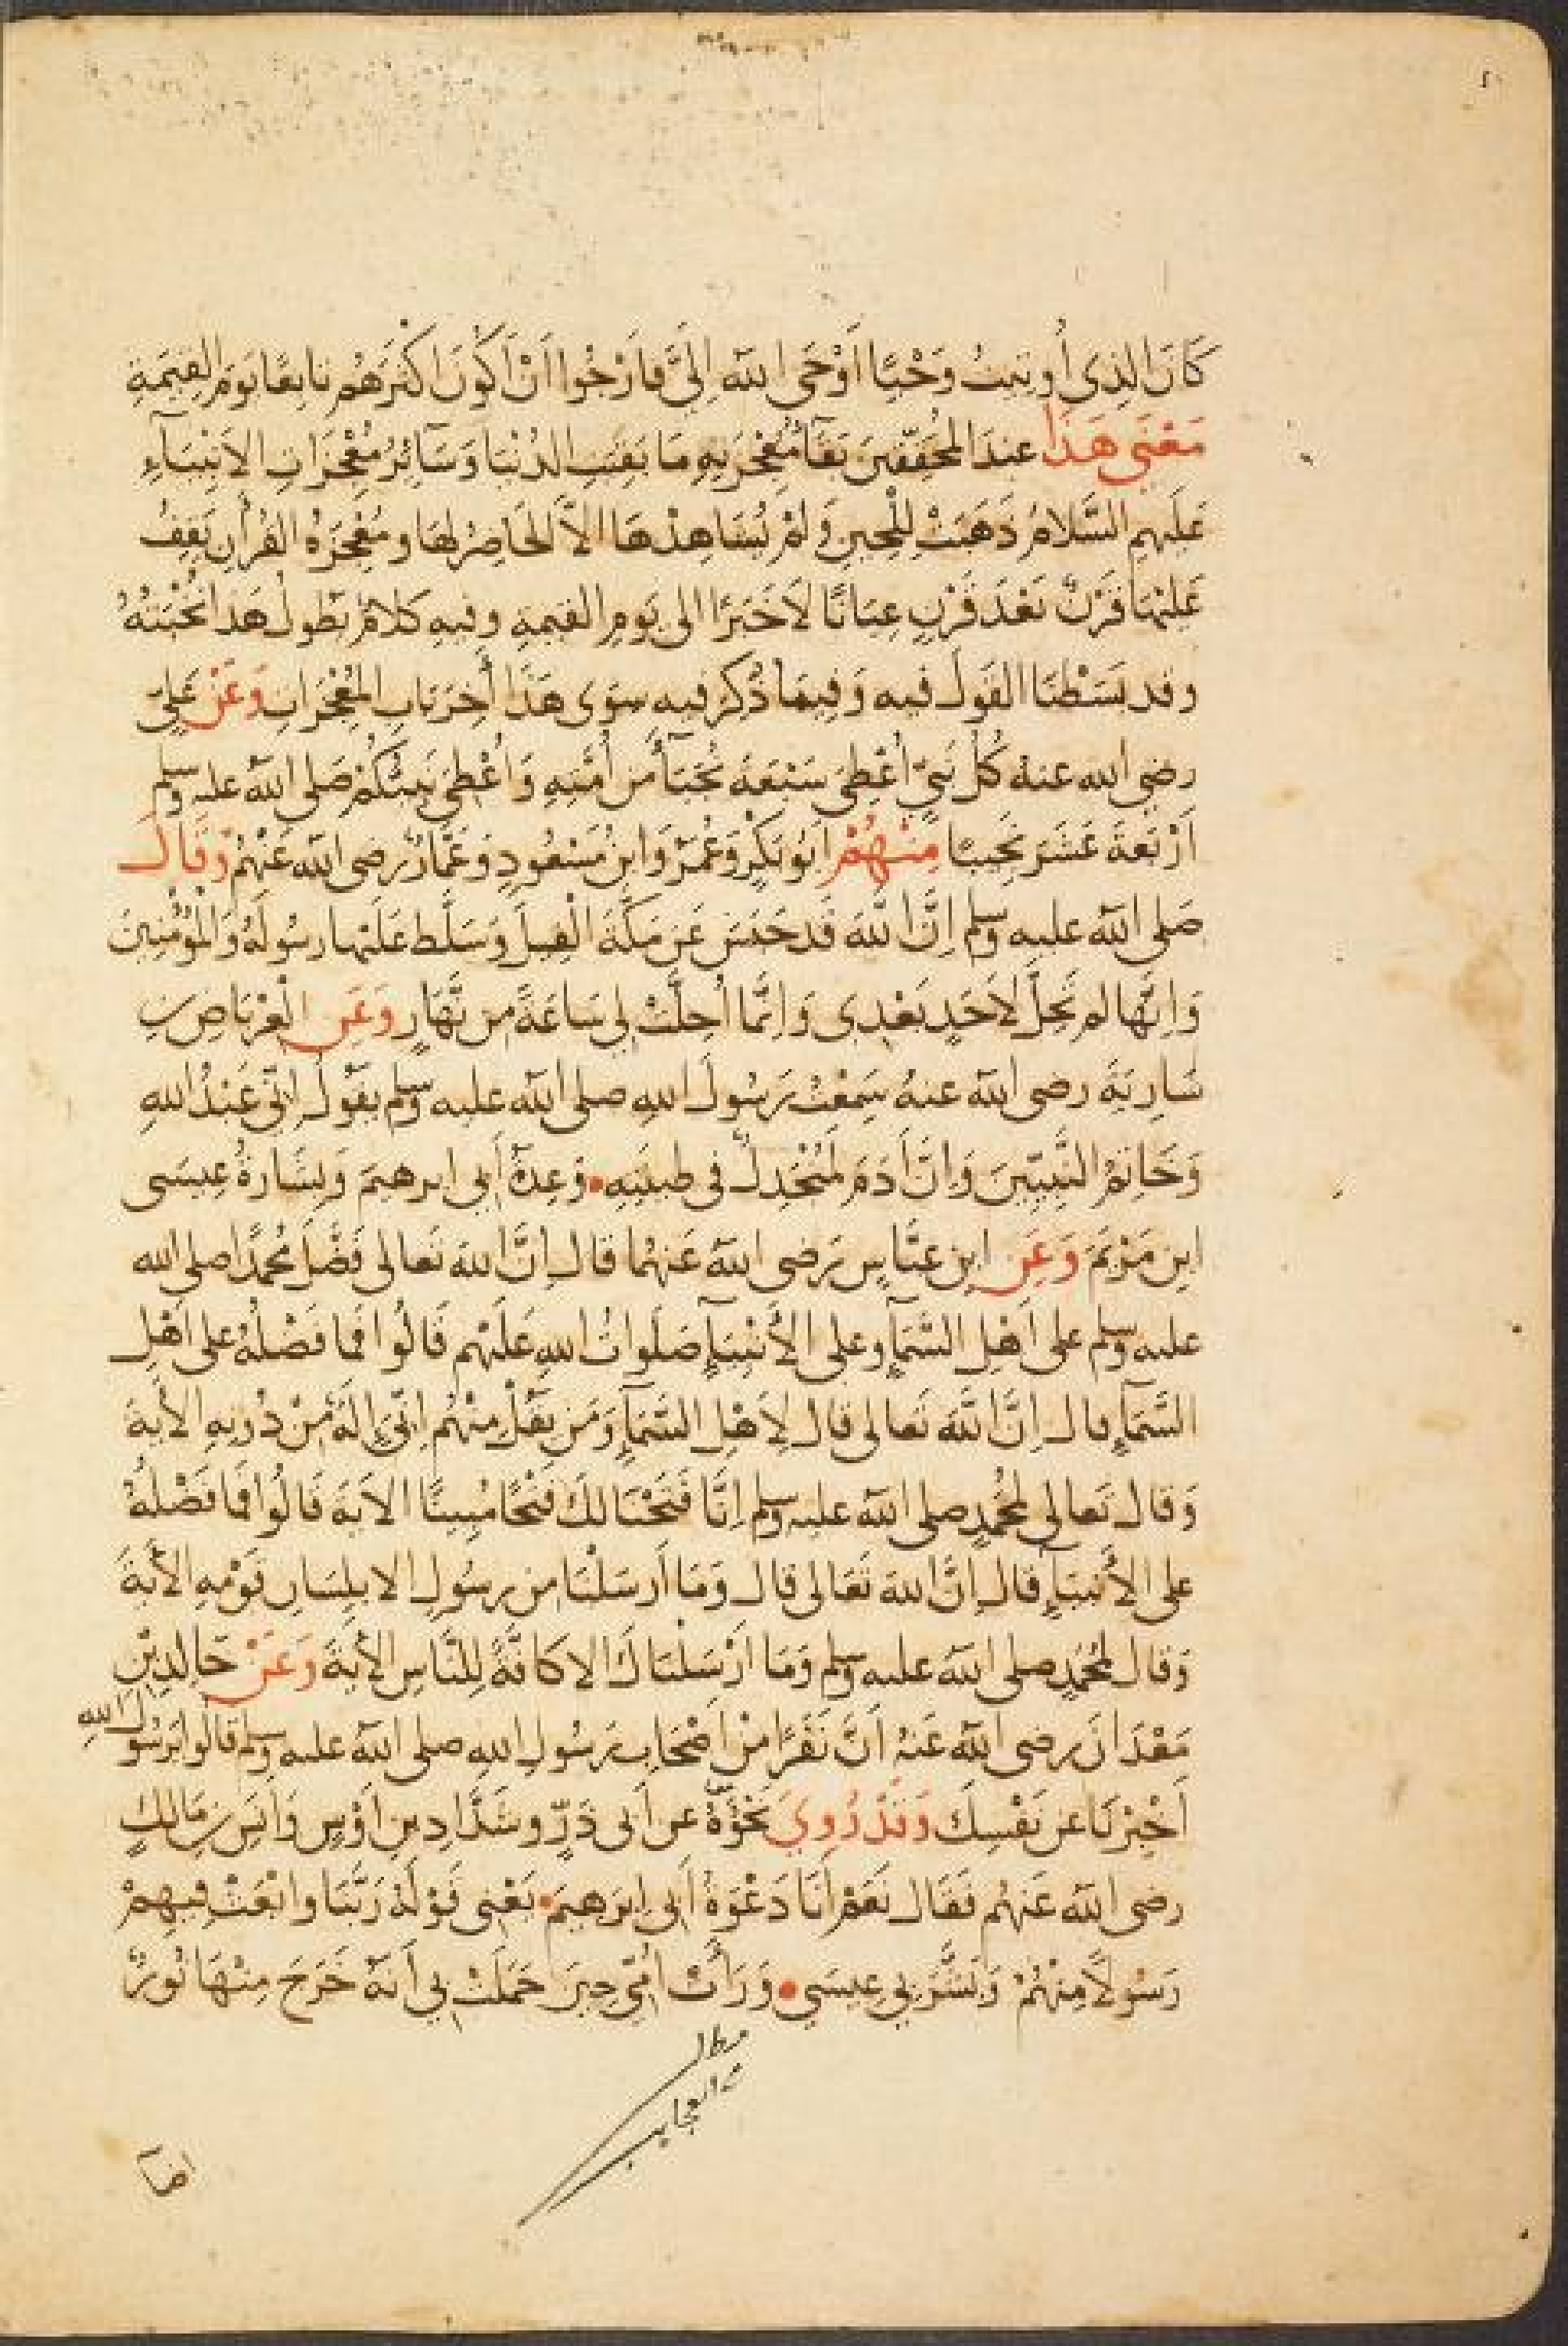 كَانَ الذِى أُوتيتُ وَحْيًا أَوْحَى اللّه إِلىَّ فارْجُوا أنْ أَكُونَ اكْثَرَهُم تابعًا يَوْمَ القِيٰمَةِ
مَعْنَى هَذَا عندَ المُحَقّقينَ بَقَآءُ مُعْجِزَتِهِ مَا بَقِيَتِ الدُنْيَا وَسَآئِرُ مُعْجِزَاتِ الاَنْبِيَآءِ
عَلَيهِم السَّلامُ ذَهَبَتْ لِلْحِينِ وَلَمْ يُشَاهِدْهَا الاّ الحَاضِرُ لهَا ومُعْجِزَةُ القُرْأنِ يَقِفُ
عَلَيْهَا قَرْنٌ بَعْدَ قَرْنٍ عِيَانًا لاَ خَبَرًا الى يَومِ القيٰمةِ وفيهِ كَلامٌ يَطُولُ هَذا نُخْبَتُهُ
وقد بَسَطْنَا القَولَ فيه وَفيمَا ذُكِرَ فيه سِوَى هَذَا أٰخِرَ بَابِ المُعْجِزَاتِ وَعَنْ عَلِىٍّ
رضى الله عنهُ كُلُّ نَبِىٍّ أُعْطِىَ سَبْعَةَ نُجَبَآءَ مِن أُمَّتِهِ وَأُعْطِىَ نَبِيُّكُمْ صَلى اللّه عليه وسلم
أرْبَعَةَ عَشَرَ نَجِيبًا مِنْهُمْ أبُو بَكْرٍ وَعُمَرُ وَابنُ مَسْعُودٍ وَعَمَّارٌ رضى الله عَنْهُمْ وَقَالَ
صَلى اللّه عليه وسلم إنَّ اللّهَ قَد حَبَسَ عَن مَكَّةَ الْفِيلَ وَسَلَّط عَلَيْها رسُولَهُ وَالْمُؤْمِنِينَ
وَاِنَّها لم تَحِلَّ لاَحَدٍ بَعْدِى وَاِنَّمَا اُحِلَّتْ لِى سَاعَةً مِن نَهَارٍ وَعَنِ الْعِرْبَاضِ بنِ
سَارِيَةَ رضى اللّه عنهُ سَمِعْتُ رَسُولَ اللهِ صلى اللّه عليه وسلم يَقُولُ اِنّى عَبْدُ اللهِ
وَخَاتِمُ النَّبِيّينَ وَاِنَّ أٰدَمَ لَمُنْجَدِلٌ فى طِينَتِهِ وَعِدَةُ أَبِى ابرهيمَ وَبِشَارَةُ عِيسَى
ابنِ مَرْيَمَ وَعَنِ ابنِ عبَّاسٍ رَضى اللّه عَنهُما قال اِنَّ اللهَ تَعالى فَضَّلَ مُحمّدًا صلى الله
عليه وسلم على أهْلِ السَّمَآءِ وعلى الأنْبِيَآءِ صَلَواتُ اللهِ عَلَيْهم قَالُوا فَما فَضْلُهُ على أهْلِ
السَّمَآءِ قال اِنَّ اللّهَ تَعالى قال لِاَهْلِ السَّمَآءِ وَمَن يَقُلْ مِنْهُم اِنّى اِلٰهٌ مِنْ دُونِهِ الأيةَ
وَقال تَعالى لِمُحَمّدٍ صلى اللّه عليه وسلم اِنَّا فَتَحْنَا لكَ فَتْحًا مُبِينًا الايَةَ قَالُوا فَما فَضْلُهُ
على الأَنْبيَآءِ قال اِنَّ اللهَ تَعَالى قال وَمَا أرسَلْنَا من رسُولٍ الا بلِسَانِ قَوْمِهِ الأيَةَ
وَقال لِمُحَمّدٍ صلى اللّه عليه وسلم وَمَا أرْسَلْنَاكَ الا كافَّةً لِلنَّاسِ الأيَةَ وَعَنْ خَالدِ بْنِ
مَعْدَانَ رضى اللّه عَنْهُ أنَّ نَفَرًا مِنْ أصْحَابِ رَسُولِ اللهِ صلى اللّه عليه وسلم قَالُوا يَرَسُولَ اللهِ
أَخْبِرْنَا عن نَفْسِكَ وَقَدْ رُوِيَ نَحْوُهُ عن أبى ذَرٍّ وشَدَّادِ بنِ اَوْسٍ وَأنَسِ بنِ مَالِكٍ
رضى اللّه عَنْهُم فَقَال نَعَمْ أنَا دَعْوَةُ أَبِى ابرهيمَ يَعْنِى قَوْلَهُ رَبَّنَا وابْعَثْ فيهِمْ
رَسُولًا مِنْهُمْ وَبَشَّرَ بِى عِيسَى وَرَأَتْ اُمّى حِينَ حَمَلَتْ بِى أنَّهُ خَرَجَ مِنْهَا نُورٌ
اضآ